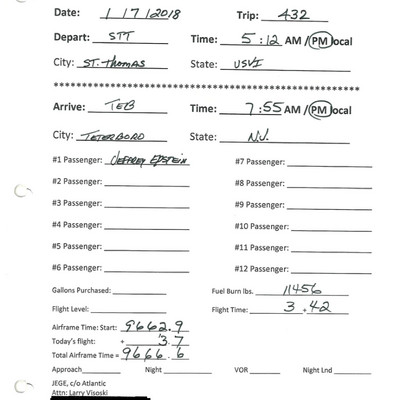 Date: 1 / 7 / 2018 Trip: 432
Depart: STT Time: 5:12 AM / PM local
City: ST. Thomas State: USVI
************************************************************
Arrive: TEB Time: 7:55 AM / PM local
City: TETERBORO State: NJ.
#1 Passenger: JEFFREY EPSTEIN #7 Passenger:
#2 Passenger: #8 Passenger:
#3 Passenger: #9 Passenger:
#4 Passenger: #10 Passenger:
#5 Passenger: #11 Passenger:
#6 Passenger: #12 Passenger:
Gallons Purchased: Fuel Burn lbs. 11456
Flight Level: Flight Time: 3 + 42
Airframe Time: Start: 9662.9
Today's flight: + 3.7
Total Airframe Time = 9666.6
Approach Night VOR Night Lnd
JEGE, c/o Atlantic
Attn: Larry Visoski